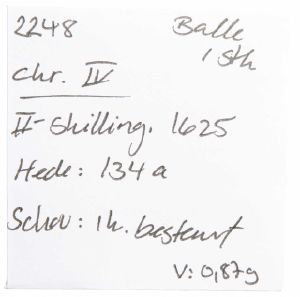 2248 Balle
1 stk
Chr. IV
II-skilling. 1625
Hede: 134 a
Schou: 1 h. bestemt
V: 0,87g